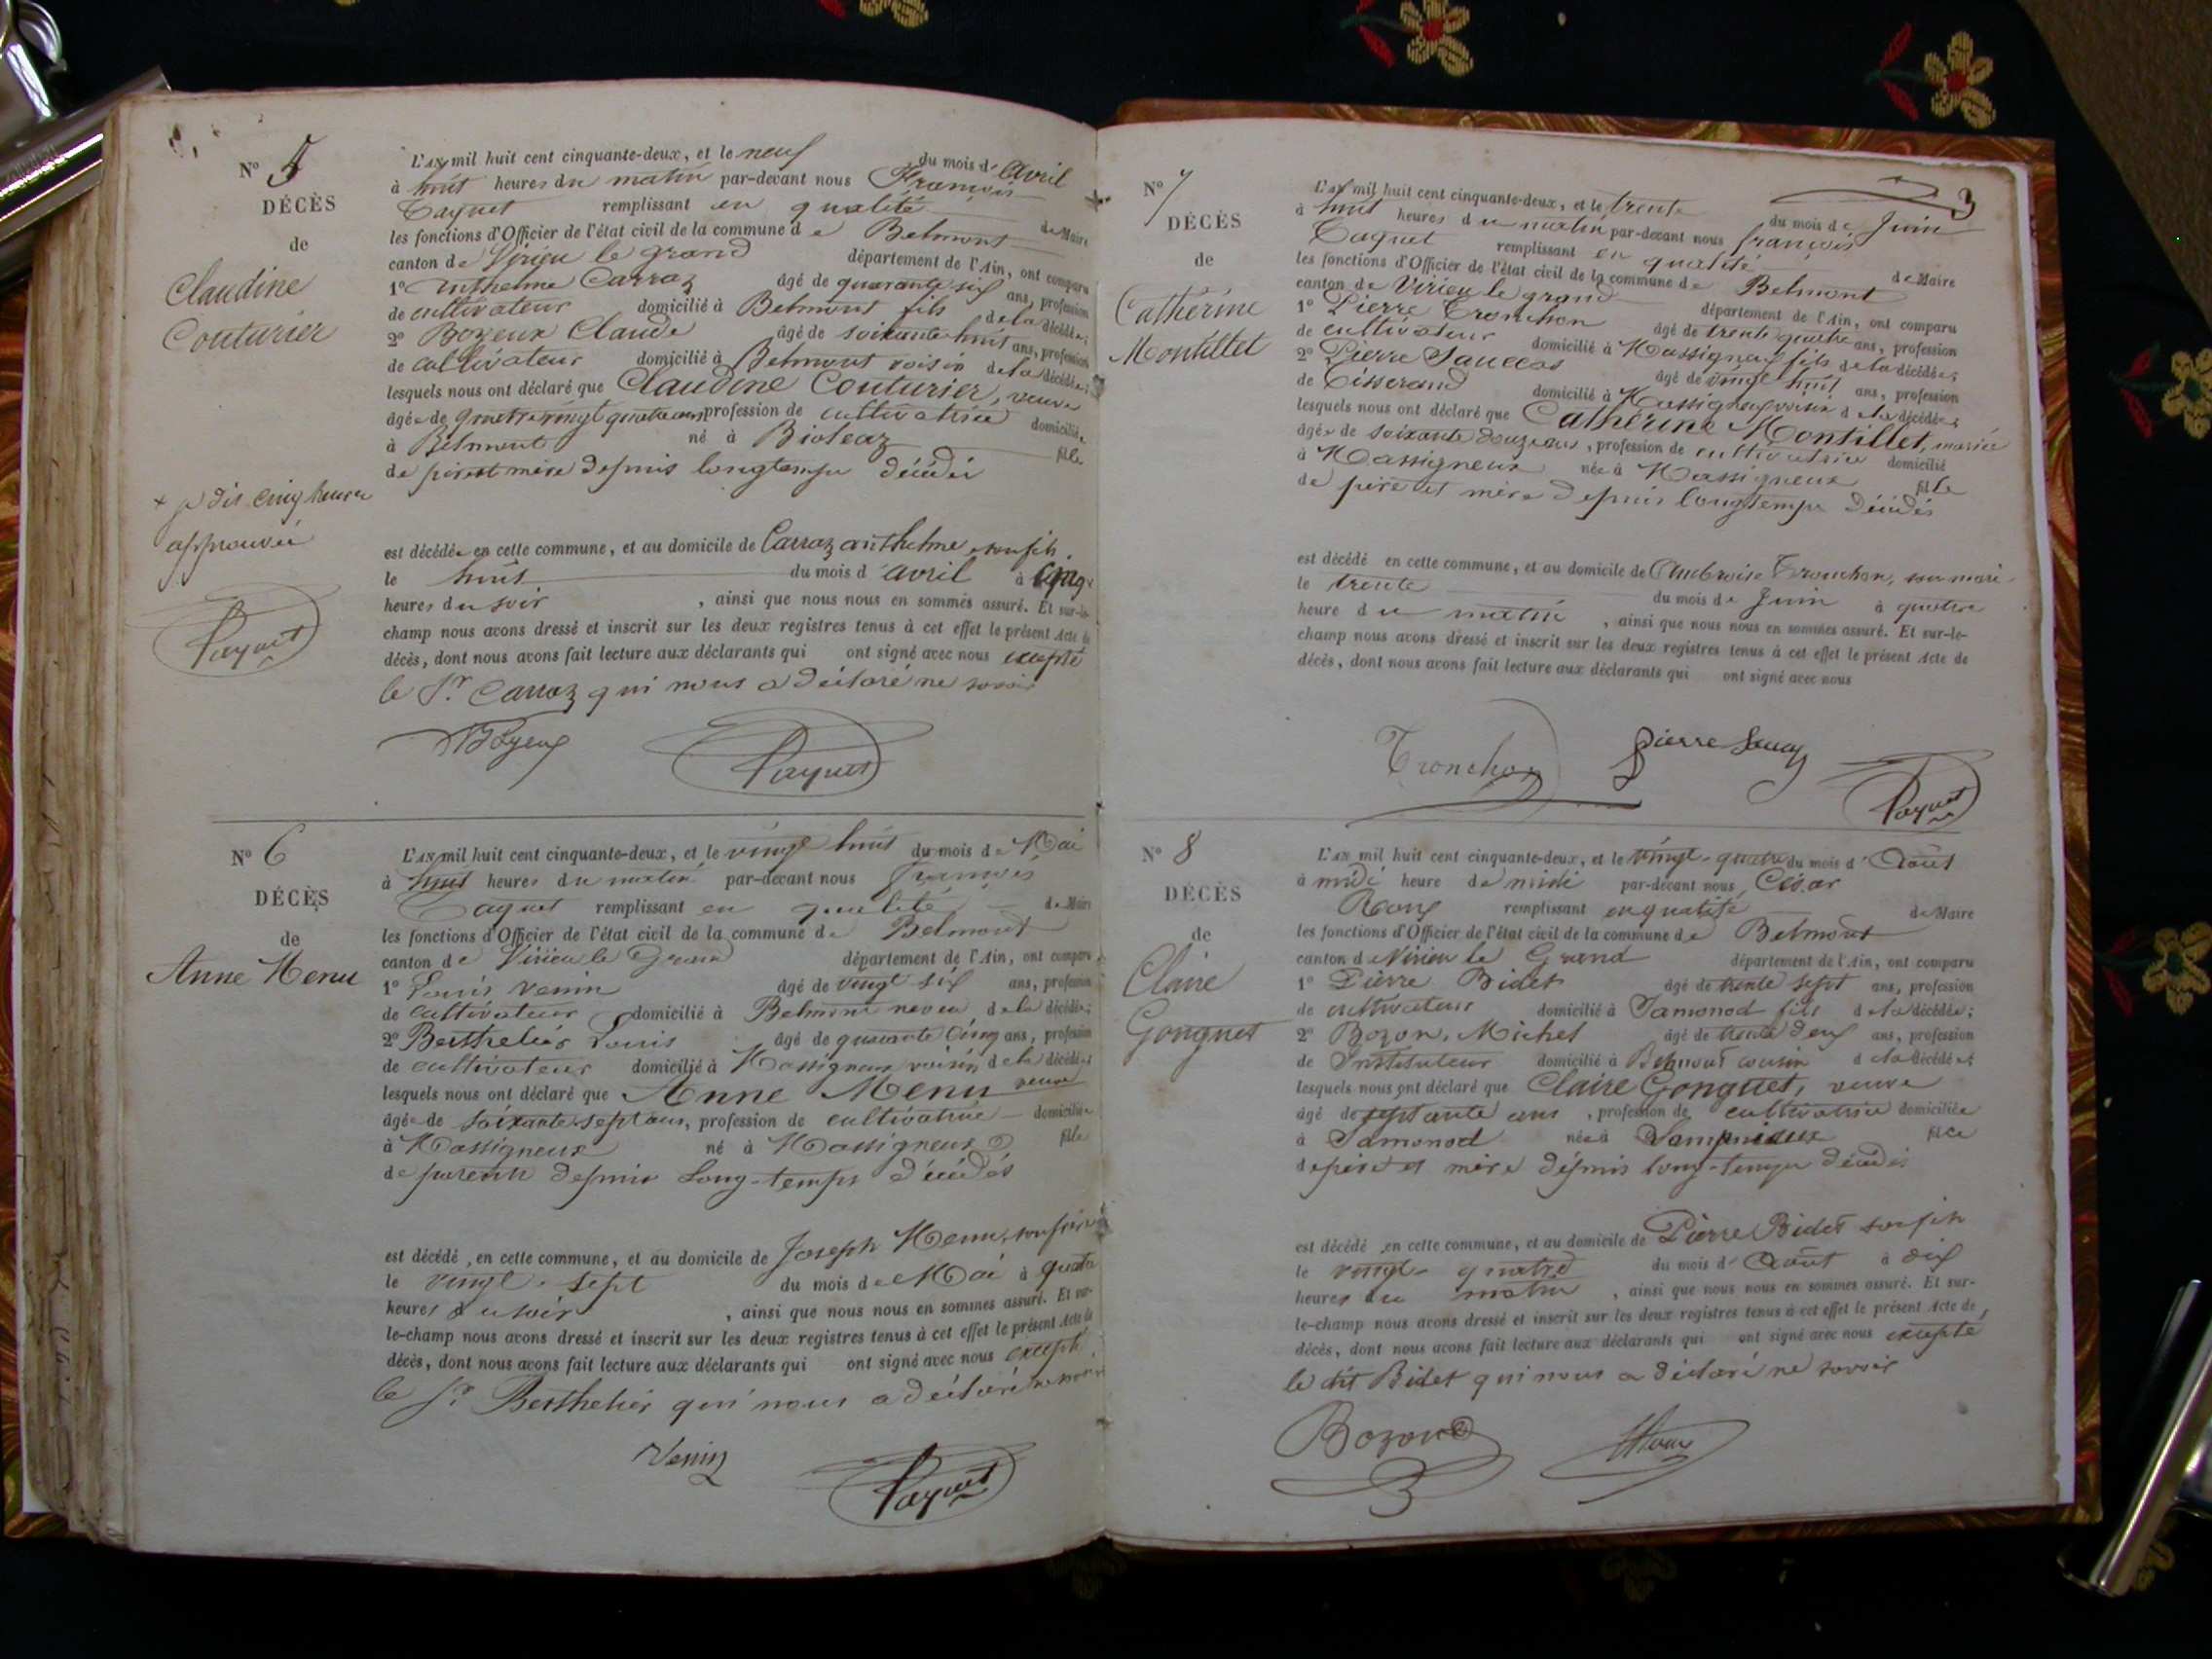 N° 5
DÉCÈS
de
Claudine
Couturier
L'AN mil huit cent cinquante-deux, et le neuf du mois d'Avril
à huit heures du matin par-devant nous François
remplissant en qualité de Maire
les fonctions d'Officier de l'état civil de la commune de Belmont
canton de Virieu le grand département de l'Ain, ont comparu
1° Anthelme Carraz âgé de quarante six ans, profession
de cultivateur domicilié à Belmont fils de la décédée;
2° Bozeux Claude âgé de soixante huit ans, profession
de cultivateur domicilié à Belmont voisin de la décédée;
lesquels nous ont déclaré que Claudine Couturier, veuve
âgée de quatre vingt quatre ans profession de cultivatrice domiciliée
à Belmont né à Bioleaz fille
de père et mère depuis longtemps décédés
+ dit cinq heures
approuvée
Paquet
est décédée en cette commune, et au domicile de Carraz anthelme son fils
le huit du mois d'avril à cinq
heures du soir , ainsi que nous nous en sommes assuré. Et sur-le-
champ nous avons dressé et inscrit sur les deux registres tenus à cet effet le présent Acte de
décès, dont nous avons fait lecture aux déclarants qui ont signé avec nous excepté
le Sr. Carraz qui nous a déclaré ne savoir
Paquet
N° 6
DÉCÈS
de
Anne Menu
L'AN mil huit cent cinquante-deux, et le vingt huit du mois de Mai
à huit heures du matin par-devant nous François
remplissant en qualité de Maire
les fonctions d'Officier de l'état civil de la commune de Belmont
canton de Virieu le Grand département de l'Ain, ont comparu
1° Louis Venin âgé de vingt six ans, profession
de cultivateur domicilié à Belmont neveu de la décédée;
2° Berthelier Louis âgé de quarante cinq ans, profession
de cultivateur domicilié à Massigneux voisin de la décédée;
lesquels nous ont déclaré que Anne Menu veuve
âgée de soixante sept ans, profession de cultivatrice domiciliée
à Massigneux né à Massigneux fille
de parents depuis long-temps décédés
est décédé, en cette commune, et au domicile de Joseph Menu, son frère
le vingt-sept du mois de Mai à quatre
heures du soir , ainsi que nous nous en sommes assuré. Et sur-
le-champ nous avons dressé et inscrit sur les deux registres tenus à cet effet le présent Acte de
décès, dont nous avons fait lecture aux déclarants qui ont signé avec nous excepté
le Sr. Berthelier qui nous a déclaré ne savoir
Venin
Paquet
3
N° 7
DÉCÈS
de
Catherine
Montillet
L'AN mil huit cent cinquante-deux, et le trente du mois de Juin
à huit heures du matin par-devant nous françois
remplissant en qualité de Maire
les fonctions d'Officier de l'état civil de la commune de Belmont
canton de Virieu le grand département de l'Ain, ont comparu
1° Pierre Tronchon âgé de trente quatre ans, profession
de cultivateur domicilié à Massigneux fils de la décédée;
2° Pierre âgé de vingt huit ans, profession
de Tisserand domicilié à Massigneux voisin de la décédée;
lesquels nous ont déclaré que Catherine Montillet, mariée
âgée de soixante douze ans, profession de cultivatrice domicilié
à Massigneux née à Massigneux fille
de père et mère depuis longtemps décédés
est décédé en cette commune, et au domicile de Ambroise Tronchon, son mari
le trente du mois de Juin à quatre
heure du matin , ainsi que nous nous en sommes assuré. Et sur-le-
champ nous avons dressé et inscrit sur les deux registres tenus à cet effet le présent Acte de
décès, dont nous avons fait lecture aux déclarants qui ont signé avec nous
Tronchon Pierre
Paquet
N° 8
DÉCÈS
de
Claire
Gonguet
L'AN mil huit cent cinquante-deux, et le vingt-quatre du mois d'Août
à midi heure de midi par-devant nous César
remplissant en qualité de Maire
les fonctions d'Officier de l'état civil de la commune de Belmont
canton de Virieu le Grand département de l'Ain, ont comparu
1° Pierre Bidet âgé de trente sept ans, profession
de cultivateur domicilié à Samonod fils de la décédée;
2° Bozon, Michel âgé de trente deux ans, profession
de Instituteur domicilié à Belmont cousin de la décédée;
lesquels nous ont déclaré que Claire Gonguet, veuve
âgé de septante ans, profession de cultivatrice domiciliée
à Samonod née à fille
de père et mère depuis long-temps décédés
est décédé en cette commune, et au domicile de Pierre Bidet son fils
le vingt-quatre du mois d'Août à dix
heures du matin , ainsi que nous nous en sommes assuré. Et sur-
le-champ nous avons dressé et inscrit sur les deux registres tenus à cet effet le présent Acte de
décès, dont nous avons fait lecture aux déclarants qui ont signé avec nous excepté
le dit Bidet qui nous a déclaré ne savoir
Bozon